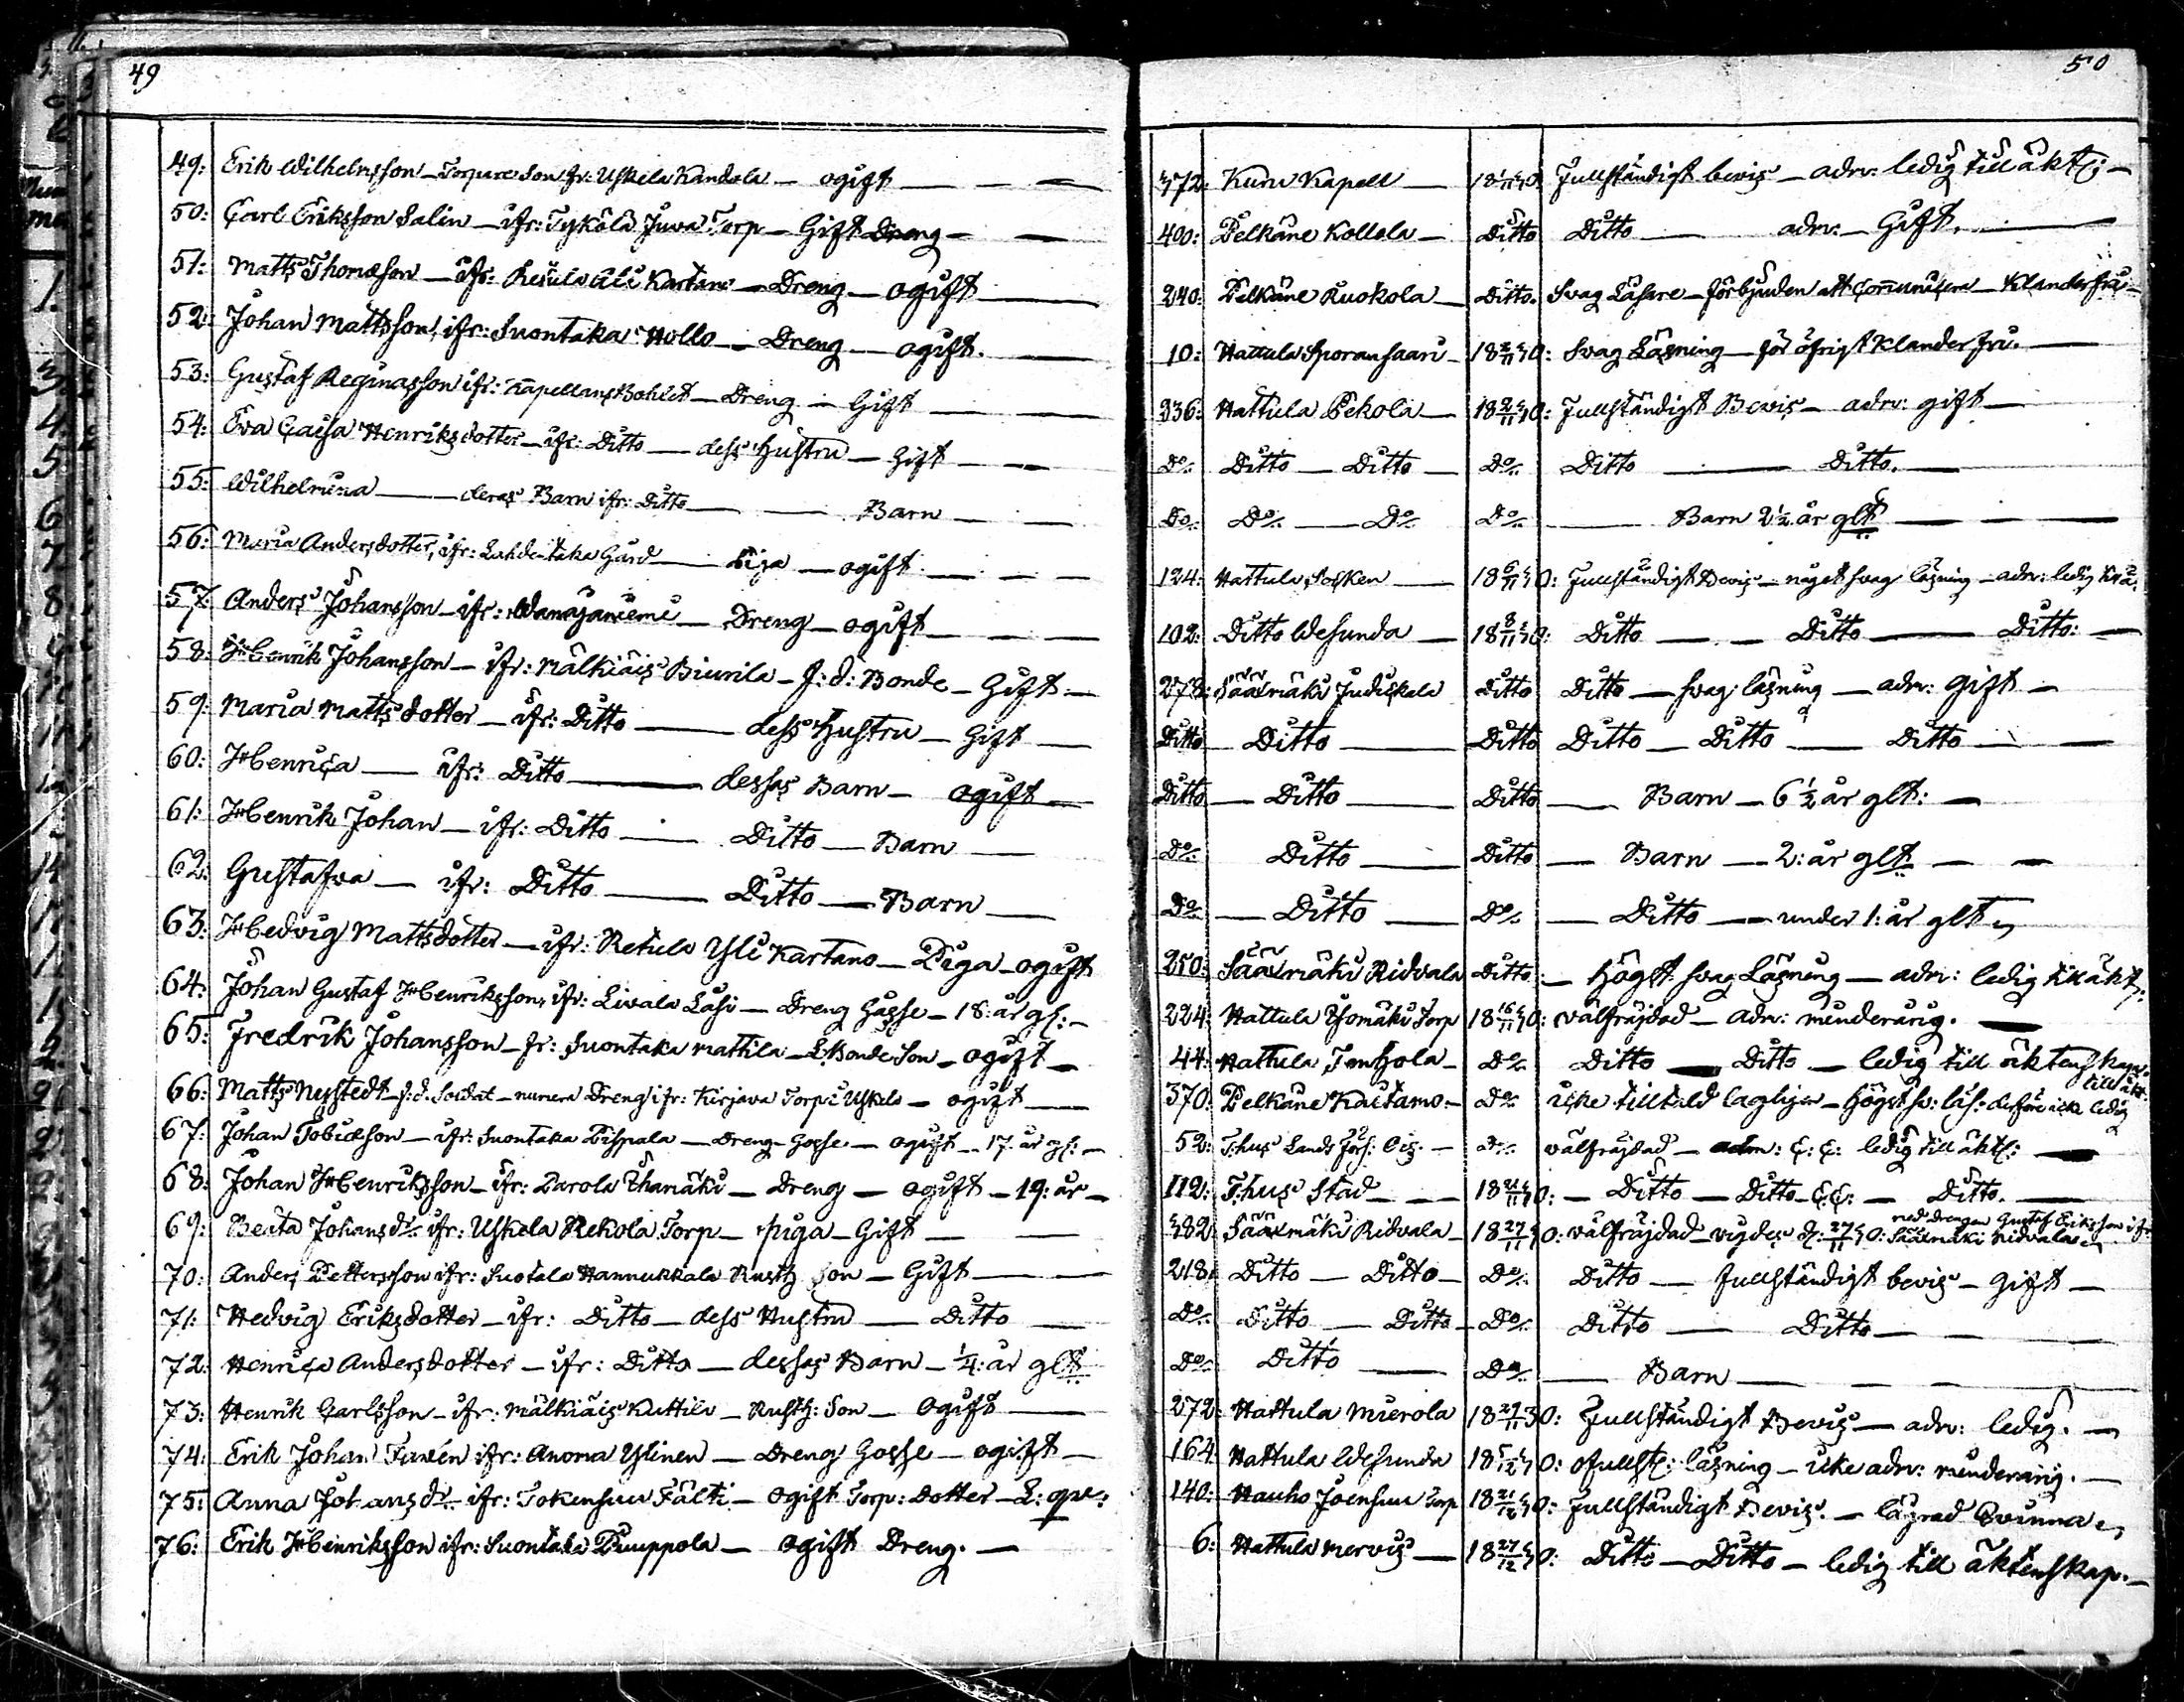 49
49: Erik Wilhelmsson – Torpare Son ifr: Uskela Kandola – ogift –
50: Carl Eriksson Salin – ifr: Tyköla Juva Torp – Gift Dreng –
51: Matts Thomæson – ifr: Retula Ali Kartano – Dreng – ogift –
52: Johan Mattsson, ifr: Suontaka Hollo – Dreng – ogift. –
53: Gustaf Reginasson ifr: Kapellans Bohlet – Dreng – Gift –
54: Eva Caisa Henriksdotter – ifr: Ditto – dess Hustru – Gift –
55: Wilhelmina – deras Barn ifr: Ditto – Barn –
56: Maria Andersdotter, ifr: Lahdentaka Gård – Piga – ogift –
57: Anders Johansson – ifr: Wanajaniemi – Dreng – ogift –
58: Henrik Johansson – ifr: Mälkiäis Biurila – f: d: Bonde – Gift –
59: Maria Mattsdotter – ifr: Ditto – dess Hustru – Gift –
60: Henrica – ifr: Ditto – dessas Barn – ogift –
61: Henrik Johan – ifr: Ditto – Ditto – Barn –
62: Gustafva – ifr: Ditto – Ditto – Barn –
63: Hedvig Mattsdotter – ifr: Retula Yli Kartano – Piga – ogift
64: Johan Gustaf Henriksson, ifr: Livala Låsi – Dreng Gosse – 18: år gl: –
65: Fredrik Johansson – fr: Suontaka Mattila – L: Bonde Son – ogift –
66: Matts Nystedt – f: d. Soldat – numera Dreng ifr: Kirjava Torp i Uskela – ogift –
67: Johan Tobiæson – ifr: Suontaka Pispala – Dreng-Gosse – ogift – 17. år gl: –
68: Johan Henriksson – ifr: Parola Ihamäki – Dreng – ogift – 19: år –
69: Beata Johansdr. ifr: Uskela Rekola Torp – piga – Gift –
70: Anders Pettersson ifr: Suotala Hannukkala Rusth Son – Gift –
71: Hedvig Eriksdotter – ifr: Ditto – dess Hustru – Ditto –
72: Henrica Andersdotter – ifr: Ditto – dessas Barn – ¼: år glt
73: Henrik Carlsson – ifr: Mälkiäis Kuttila – Rusth: Son – Ogift –
74: Erik Johan Fawén ifr: Anoma Ylinen – Dreng Gosse – ogift –
75: Anna Johansdr. ifr: Tokensuu Fälti – ogift Torp: Dotter – L: qv:
76: Erik Henriksson ifr: Suontaka Puuppola – ogift Dreng. –
50
472: Kuru Kapell – Fullständigt bevis – adm: ledig till äkt: –
400: Pelkäne Kollola – Ditto Ditto – adm: – Gift. –
240: Pelkäne Kuokola – Ditto. Svag Läsare – förbjuden att Communicera – Klanderfri –
10: Hattula Sporansaari – 18 2/11 40: Svag Läsning – för öfrigt Klander fri. –
236: Hattula Pekola – 18 2/11 40: Fullständigt Bevis – adm: gift –
Do. Ditto – Ditto – Do. Ditto – Ditto. –
Do. Do. – Do. Do. – Barn 2½ år glt –
124: Hattula Socken – 18 6/11 40: Fullständigt Bevis – något svag läsning – adm: ledig
102: Ditto Wesunda – 18 8/11 40: Ditto – Ditto – Ditto: –
278: Sääxmäki Judickala Ditto Ditto – svag läsning – adm: gift –
Ditto – Ditto – Ditto Ditto – Ditto – Ditto –
Ditto – Ditto – Ditto – Barn – 6½ år glt: –
Do. Ditto – Ditto – Barn – 2: år glt –
Do – Ditto – Do. – Ditto – under 1: år glt
250: Sääxmäki Ridvala Ditto – högst svag Läsning – adm: ledig till äkt:
224: Hattula Isomäki Torp 18 16/11 40: välfräjdad – adm: minderårig. –
44: Hattula Tenhola – Do. Ditto – Ditto – ledig till äktenskap
370: Pelkäne Kautamo – Do. icke tilltald lagligen – högst sv: läs: derföre icke ledig till äkt:
52: T:hus Lands Förs: – Do. välfräjdad – adm: &: &: ledig till äkt: –
112: T:hus Stad – 18 21/11 40: – Ditto – Ditto – &: &: – Ditto. –
482: Sääxmäki Ridvala – 18 27/11 40: välfräjdad – vigdes d: 27/11 40: med drengen Gustaf Eriksson ifr: Sääxmäki Ridvala
218: Ditto – Ditto – Do. Ditto – fullständigt bevis – gift –
Do. Ditto – Ditto – Do. Ditto – Ditto –
Do. Ditto – Do. – Barn –
272: Hattula Mierola 18 29/11 30: Fullständigt Bevis – adm: ledig. –
164 Hattula Wesunda 18 5/12 40: ofullst: läsning – icke adm: minderårig. –
140: Hauho Joensuu Torp 18 21/12 40: Fullständigt Bevis. – lägrad Qvinna
6: Hattula Mervis – 18 27/12 40: Ditto – Ditto – ledig till äktenskap. –